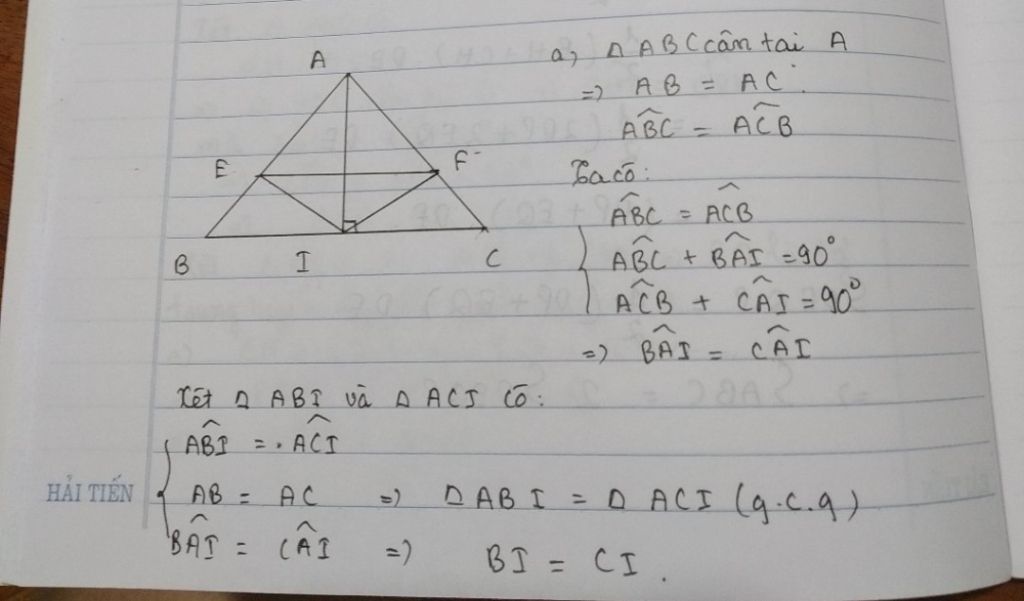 A
E
F
B
I
C
a, Δ ABC cân tại A
=> AB = AC.
ABC^ = ACB^
Ta có:
ABC^ = ACB^
ABC^ + BAI^ = 90°
ACB^ + CAI^ = 90°
=> BAI^ = CAI^
Xét Δ ABI và Δ ACI có:
ABI^ = ACI^
AB = AC => Δ ABI = Δ ACI (g.c.g)
BAI^ = CAI^ => BI = CI.
HẢI TIẾN